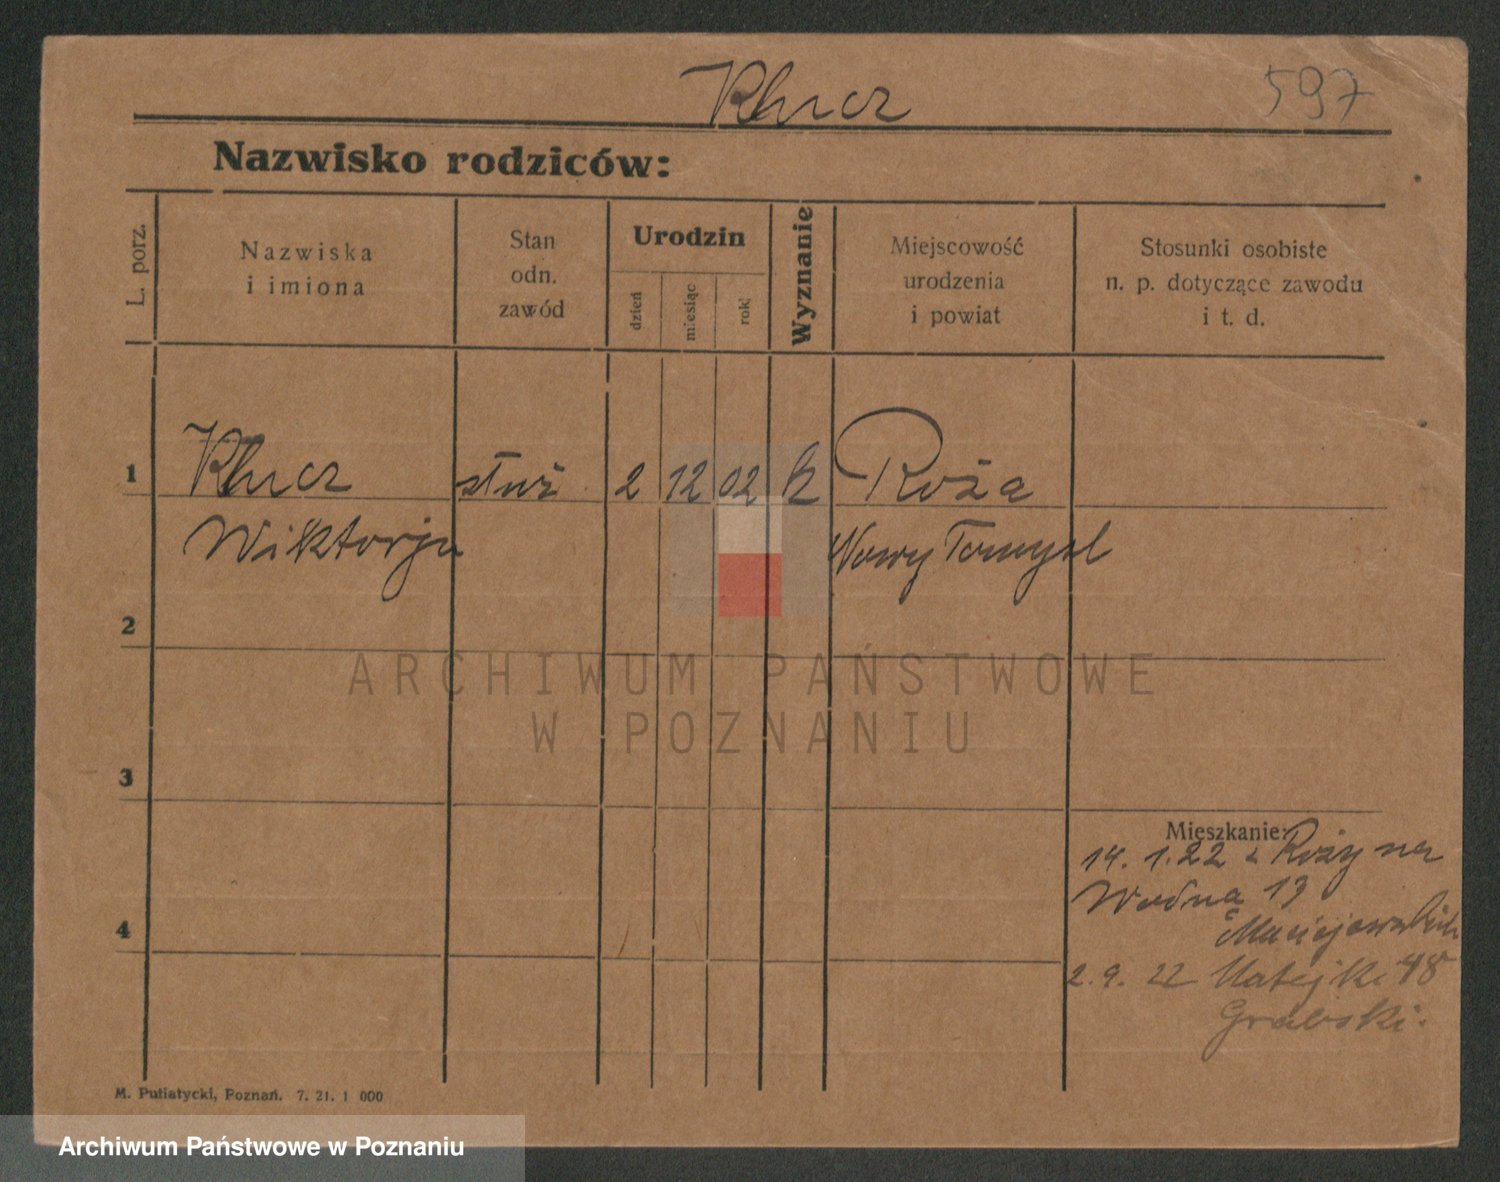 Klucz
597
Nazwisko rodziców:
L. porz.
Nazwiska
i imiona
Stan
odn.
zawód
Urodzin
dzień
miesiąc
rok
Wyznanie
Miejscowość
urodzenia
i powiat
Stosunki osobiste
n. p. dotyczące zawodu
i t. d.
1 Klucz służ 2 12 02 k Róża
Wiktorja Nowy Tomysl
2
ARCHIWUM PAŃSTWOWE
W POZNANIU
3
Mieszkanie:
14. 1. 22 z Róży na
Wodna 13
4
2. 9. 22 Matejki 48
Grabski.
M. Putiatycki, Poznań. 7. 21. 1 000
Archiwum Państwowe w Poznaniu